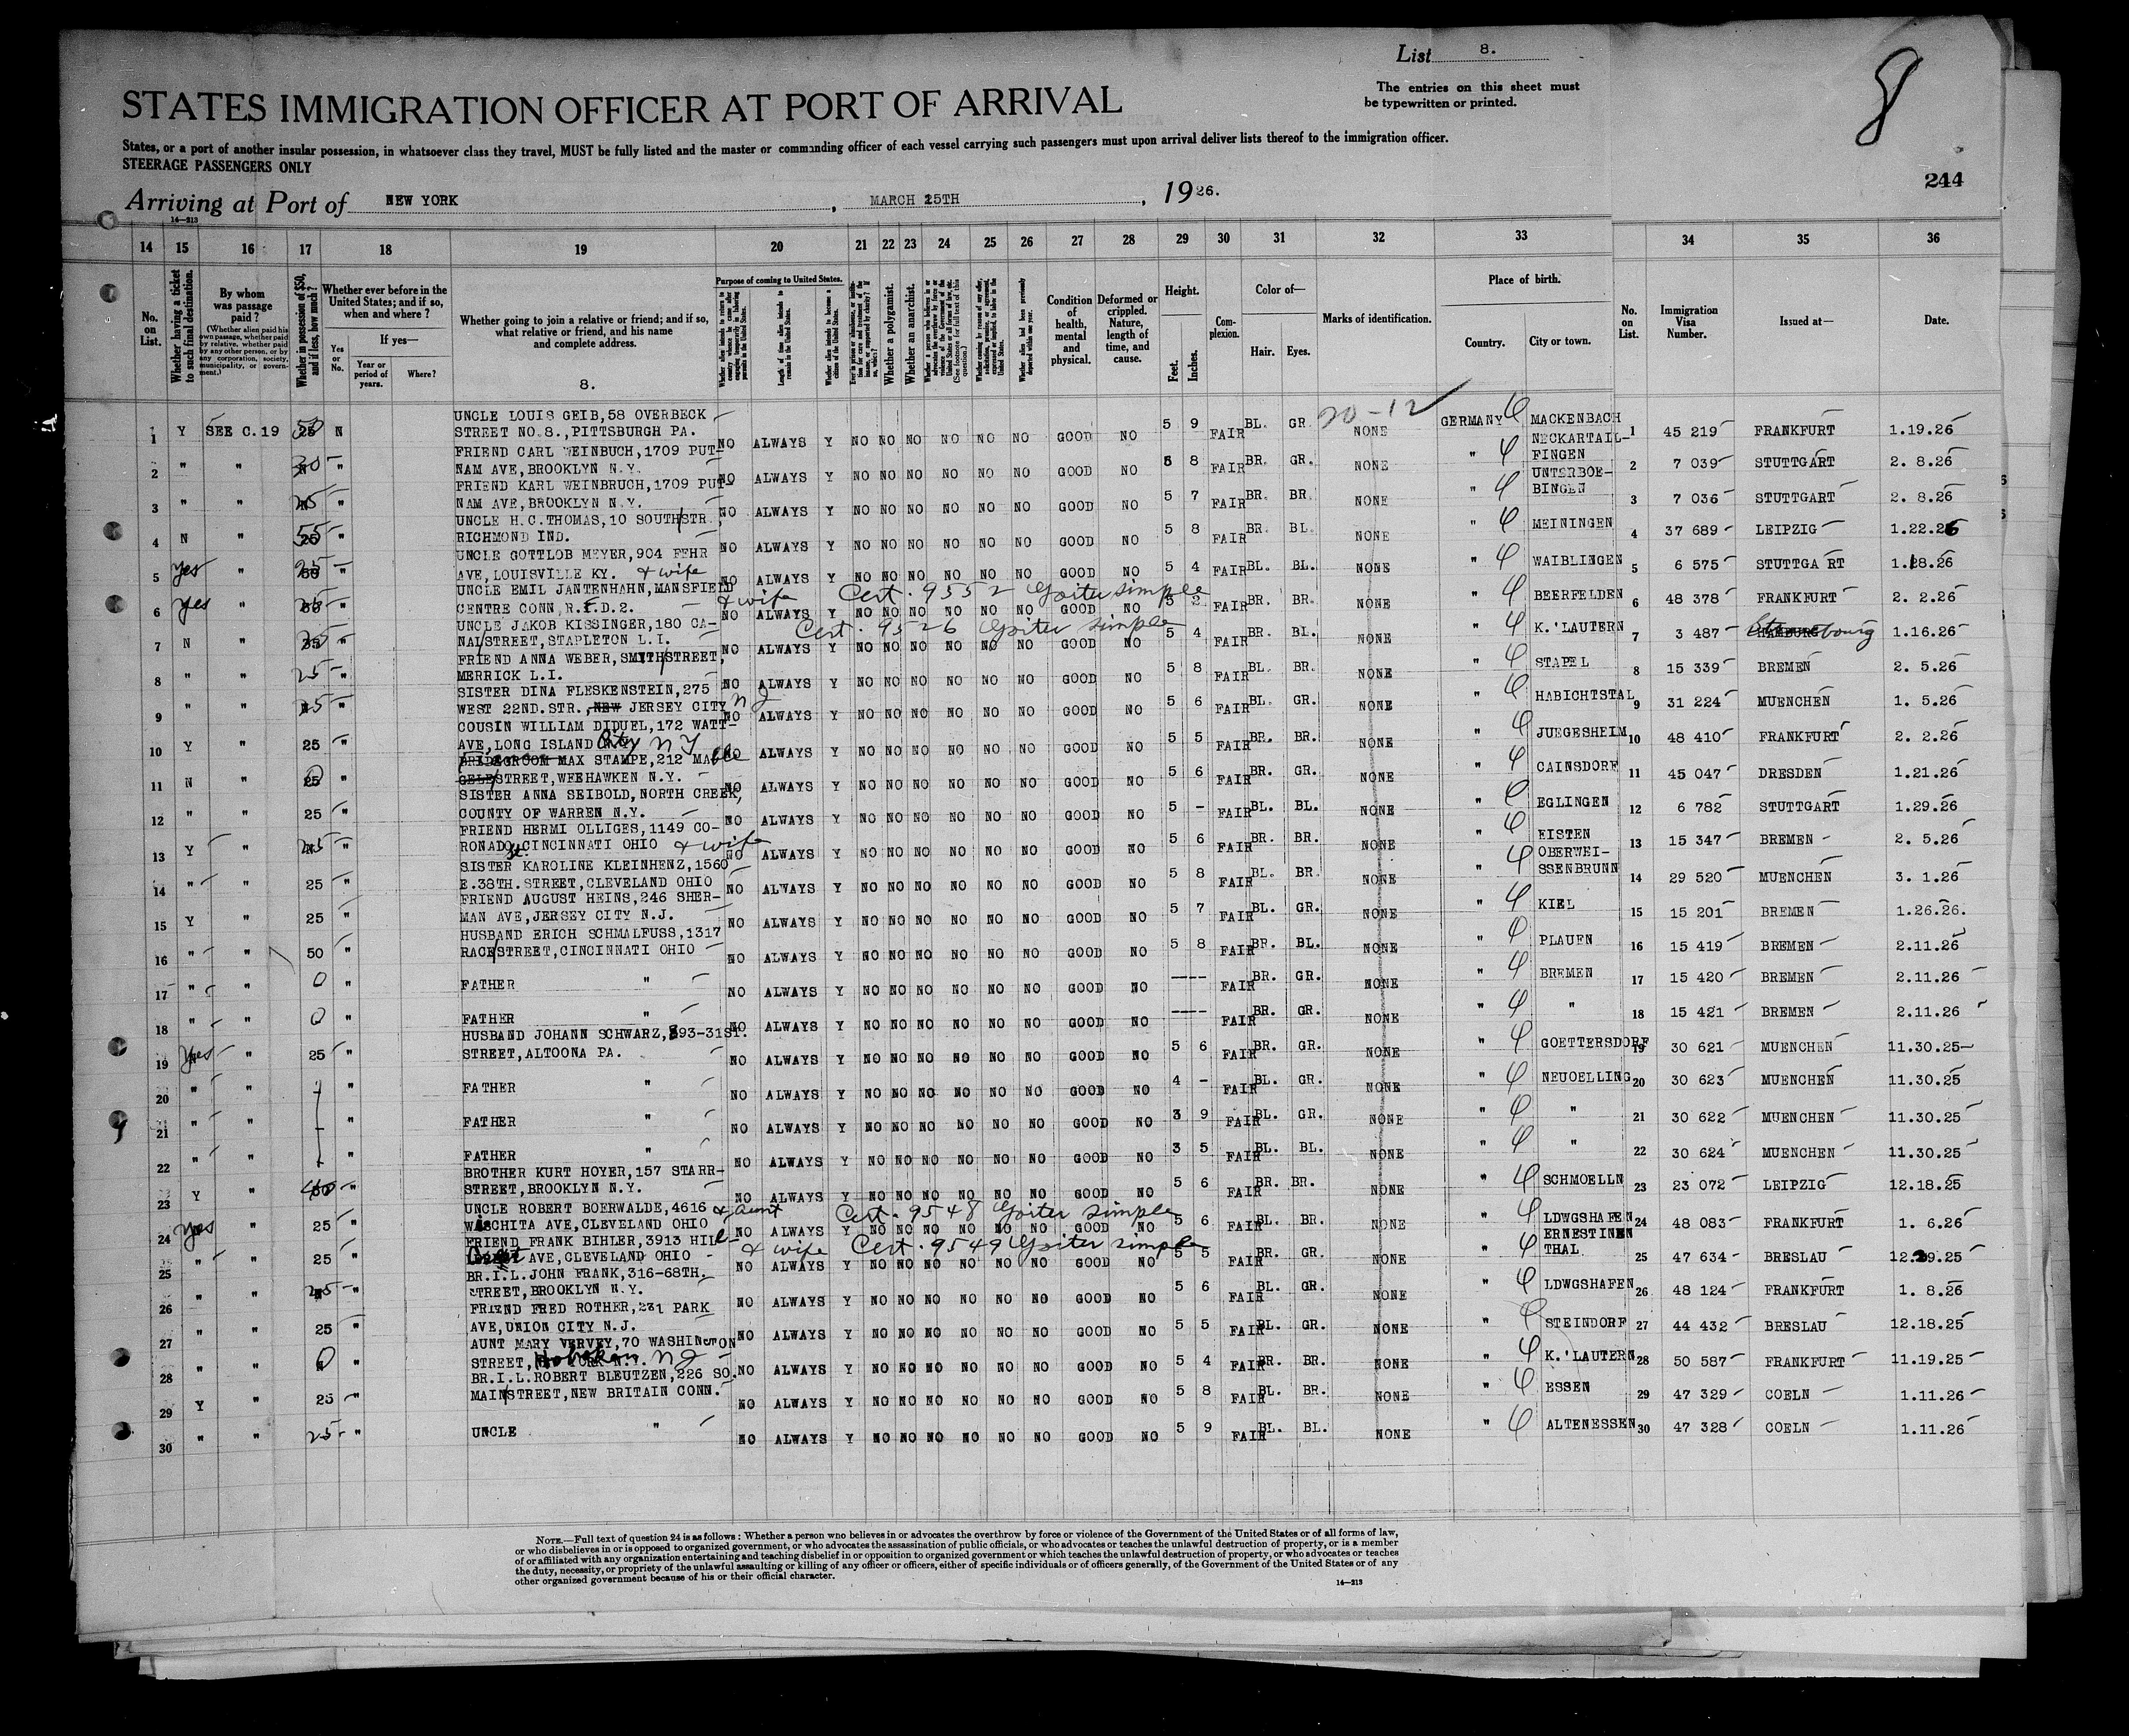 List 8.
8
The entries on this sheet must
be typewritten or printed.
STATES IMMIGRATION OFFICER AT PORT OF ARRIVAL
States, or a port of another insular possession, in whatsoever class they travel, MUST be fully listed and the master or commanding officer of each vessel carrying such passengers must upon arrival deliver lists thereof to the immigration officer.
STEERAGE PASSENGERS ONLY
244
Arriving at Port of NEW YORK, MARCH 25TH, 1926.
14—213
14 15 16 17 18 19 20 21 22 23 24 25 26 27 28 29 30 31 32 33 34 35 36
No. on List.
Whether having a ticket to such final destination.
By whom was passage paid?
(Whether alien paid his own passage, whether paid by relative, whether paid by any other person, or by any corporation, society, municipality, or government.)
Whether in possession of $50, and if less, how much?
Whether ever before in the United States; and if so, when and where?
Yes or No.
If yes—
Year or period of years.
Where?
Whether going to join a relative or friend; and if so, what relative or friend, and his name and complete address.
8.
Purpose of coming to United States.
Length of time alien intends to remain in the United States.
Whether alien intends to become a citizen of the United States.
Whether a polygamist.
Whether an anarchist.
Condition of health, mental and physical.
Deformed or crippled. Nature, length of time, and cause.
Height.
Feet. Inches.
Complexion.
Color of—
Hair. Eyes.
Marks of identification.
Place of birth.
Country. City or town.
No. on List.
Immigration Visa Number.
Issued at—
Date.
20-12
1 Y SEE C.19 50 N UNCLE LOUIS GEIB,58 OVERBECK STREET NO.8.,PITTSBURGH PA. NO ALWAYS Y NO NO NO NO NO NO GOOD NO 5 9 FAIR BL. GR. NONE GERMANY MACKENBACH 1 45 219 FRANKFURT 1.19.26
2 " " 30 " FRIEND CARL WEINBUCH,1709 PUTNAM AVE,BROOKLYN N.Y. NO ALWAYS Y NO NO NO NO NO NO GOOD NO 5 8 FAIR BR. GR. NONE " NECKARTAIL-FINGEN 2 7 039 STUTTGART 2. 8.26
3 " " 25 " FRIEND KARL WEINBRUCH,1709 PUT-NAM AVE,BROOKLYN N.Y. NO ALWAYS Y NO NO NO NO NO NO GOOD NO 5 7 FAIR BR. BR. NONE " UNTERBOE-BINGEN 3 7 036 STUTTGART 2. 8.26
4 N " 55 " UNCLE H.C.THOMAS,10 SOUTH/STR., RICHMOND IND. NO ALWAYS Y NO NO NO NO NO NO GOOD NO 5 8 FAIR BR. BL. NONE " MEININGEN 4 37 689 LEIPZIG 1.22.26
5 yes " " UNCLE GOTTLOB MEYER,904 FEHR AVE,LOUISVILLE KY. & wife NO ALWAYS Y NO NO NO NO NO NO GOOD NO 5 4 FAIR BL. BL. NONE " WAIBLINGEN 5 6 575 STUTTGART 1.28.26
Cert. 9552 Goiter simple
6 yes " " UNCLE EMIL JANTENHAHN,MANSFIELD CENTRE CONN,R.F.D.2. & wife NO ALWAYS Y NO NO NO NO NO NO GOOD NO 5 2 FAIR BR. BR. NONE " BEERFELDEN 6 48 378 FRANKFURT 2. 2.26
Cert. 9526 Goiter simple
7 N " " UNCLE JAKOB KISSINGER,180 CA-NAL/STREET,STAPLETON L.I. NO ALWAYS Y NO NO NO NO NO NO GOOD NO 5 4 FAIR BR. BL. NONE " K.'LAUTERN 7 3 487 1.16.26
8 " " 25 " FRIEND ANNA WEBER,SMYTH/STREET, MERRICK L.I. NO ALWAYS Y NO NO NO NO NO NO GOOD NO 5 8 FAIR BL. BR. NONE " STAPEL 8 15 339 BREMEN 2. 5.26
9 " " " SISTER DINA FLESKENSTEIN,275 WEST 22ND.STR.,NEW JERSEY CITY N J NO ALWAYS Y NO NO NO NO NO NO GOOD NO 5 6 FAIR BL. GR. NONE " HABICHTSTAL 9 31 224 MUENCHEN 1. 5.26
10 Y " 25 " COUSIN WILLIAM DIDUEL,172 WATT-AVE,LONG ISLAND City N Y NO ALWAYS Y NO NO NO NO NO NO GOOD NO 5 5 FAIR BR. BR. NONE " JUEGESHEIM 10 48 410 FRANKFURT 2. 2.26
11 N " " BRIDEGROOM MAX STAMPE,212 MA STREET,WEEHAWKEN N.Y. NO ALWAYS Y NO NO NO NO NO NO GOOD NO 5 6 FAIR BR. GR. NONE " CAINSDORF 11 45 047 DRESDEN 1.21.26
12 " " 25 " SISTER ANNA SEIBOLD,NORTH CREEK, COUNTY OF WARREN N.Y. NO ALWAYS Y NO NO NO NO NO NO GOOD NO 5 - FAIR BL. BL. NONE " EGLINGEN 12 6 782 STUTTGART 1.29.26
13 Y " " FRIEND HERMI OLLIGES,1149 CO-RONADO st. CINCINNATI OHIO & wife NO ALWAYS Y NO NO NO NO NO NO GOOD NO 5 6 FAIR BR. BR. NONE " EISTEN 13 15 347 BREMEN 2. 5.26
14 " " 25 " SISTER KAROLINE KLEINHENZ,1560 E.38TH.STREET,CLEVELAND OHIO NO ALWAYS Y NO NO NO NO NO NO GOOD NO 5 8 FAIR BL. BR. NONE " OBERWEI-SSENBRUNN 14 29 520 MUENCHEN 3. 1.26
15 Y " 25 " FRIEND AUGUST HEINS,246 SHER-MAN AVE,JERSEY CITY N.J. NO ALWAYS Y NO NO NO NO NO NO GOOD NO 5 7 FAIR BL. GR. NONE " KIEL 15 15 201 BREMEN 1.26.26.
16 " " 50 " HUSBAND ERICH SCHMALFUSS,1317 RACE/STREET,CINCINNATI OHIO NO ALWAYS Y NO NO NO NO NO NO GOOD NO 5 8 FAIR BR. BL. NONE " PLAUEN 16 15 419 BREMEN 2.11.26
17 " " 0 " FATHER " NO ALWAYS Y NO NO NO NO NO NO GOOD NO ---- FAIR BR. GR. NONE " BREMEN 17 15 420 BREMEN 2.11.26
18 " " 0 " FATHER " NO ALWAYS Y NO NO NO NO NO NO GOOD NO ---- FAIR BR. GR. NONE " " 18 15 421 BREMEN 2.11.26
19 Yes " 25 " HUSBAND JOHANN SCHWARZ,893-31ST. STREET,ALTOONA PA. NO ALWAYS Y NO NO NO NO NO NO GOOD NO 5 6 FAIR BR. GR. NONE " GOETTERSDORF 19 30 621 MUENCHEN 11.30.25
20 " " " FATHER " NO ALWAYS Y NO NO NO NO NO NO GOOD NO 4 - FAIR BL. GR. NONE " NEUOELLING 20 30 623 MUENCHEN 11.30.25
21 " " " FATHER " NO ALWAYS Y NO NO NO NO NO NO GOOD NO 3 9 FAIR BL. GR. NONE " " 21 30 622 MUENCHEN 11.30.25
22 " " " FATHER " NO ALWAYS Y NO NO NO NO NO NO GOOD NO 3 5 FAIR BL. BL. NONE " " 22 30 624 MUENCHEN 11.30.25
23 Y " " BROTHER KURT HOYER,157 STARR-STREET,BROOKLYN N.Y. NO ALWAYS Y NO NO NO NO NO NO GOOD NO 5 6 FAIR BR. BR. NONE " SCHMOELLN 23 23 072 LEIPZIG 12.18.25
Cert. 9548 Goiter simple
24 Yes " 25 " UNCLE ROBERT BOERWALDE,4616 & Aunt WASCHITA AVE,CLEVELAND OHIO NO ALWAYS Y NO NO NO NO NO NO GOOD NO 5 6 FAIR BL. BR. NONE " LDWGSHAFEN 24 48 083 FRANKFURT 1. 6.26
Cert. 9549 Goiter simple
25 " " 25 " FRIEND FRANK BIHLER,3913 HILL- AVE,CLEVELAND OHIO & wife NO ALWAYS Y NO NO NO NO NO NO GOOD NO 5 5 FAIR BR. GR. NONE " ERNESTINEN THAL 25 47 634 BRESLAU 12.29.25
26 " " " BR.I.L.JOHN FRANK,316-68TH. STREET,BROOKLYN N.Y. NO ALWAYS Y NO NO NO NO NO NO GOOD NO 5 6 FAIR BL. GR. NONE " LDWGSHAFEN 26 48 124 FRANKFURT 1. 8.26
27 " " 25 " FRIEND FRED ROTHER,231 PARK AVE,UNION CITY N.J. NO ALWAYS Y NO NO NO NO NO NO GOOD NO 5 5 FAIR BL. GR. NONE " STEINDORF 27 44 432 BRESLAU 12.18.25
28 " " 0 " AUNT MARY VERVEY,70 WASHINGTON STREET, Hoboken N J NO ALWAYS Y NO NO NO NO NO NO GOOD NO 5 4 FAIR BR. BR. NONE " K.'LAUTERN 28 50 587 FRANKFURT 11.19.25
29 Y " 25 " BR.I.L.ROBERT BLEUTZEN,226 SO. MAIN/STREET,NEW BRITAIN CONN. NO ALWAYS Y NO NO NO NO NO NO GOOD NO 5 8 FAIR BL. BR. NONE " ESSEN 29 47 329 COELN 1.11.26
30 " " 25 " UNCLE " NO ALWAYS Y NO NO NO NO NO NO GOOD NO 5 9 FAIR BL. BL. NONE " ALTENESSEN 30 47 328 COELN 1.11.26
NOTE.—Full text of question 24 is as follows: Whether a person who believes in or advocates the overthrow by force or violence of the Government of the United States or of all forms of law,
or who disbelieves in or is opposed to organized government, or who advocates the assassination of public officials, or who advocates or teaches the unlawful destruction of property, or is a member
of or affiliated with any organization entertaining and teaching disbelief in or opposition to organized government or which teaches the unlawful destruction of property, or who advocates or teaches
the duty, necessity, or propriety of the unlawful assaulting or killing of any officer or officers, either of specific individuals or of officers generally, of the Government of the United States or of any
other organized government because of his or their official character.
14—213